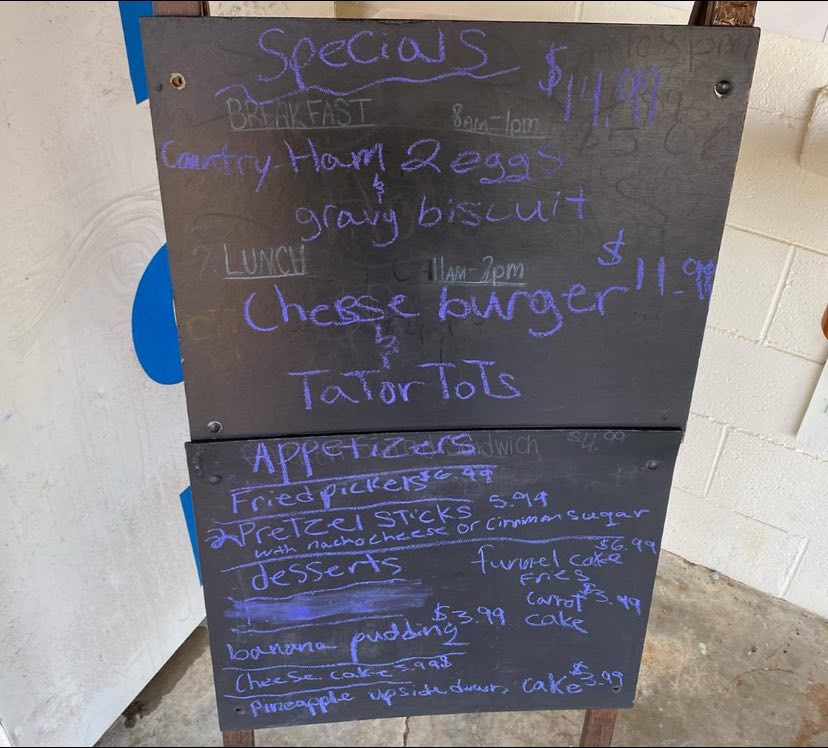 Specials
$14.99
BREAKFAST 8AM-1pm
Country-Ham 2 eggs
&
gravy biscuit
LUNCH 11AM-2pm
$11.99
Chesse burger
&
Tator Tots
Appetizers
Sandwich $4.99
Fried pickers $6.99
2 Pretzel Sticks 5.99
with nacho cheese or Cinnimon sugar
desserts
funnel cake $6.99
Fries
carrot $3.99
cake
banana pudding $3.99
Cheese cake 3.99$
Pineapple upside down cake $3.99